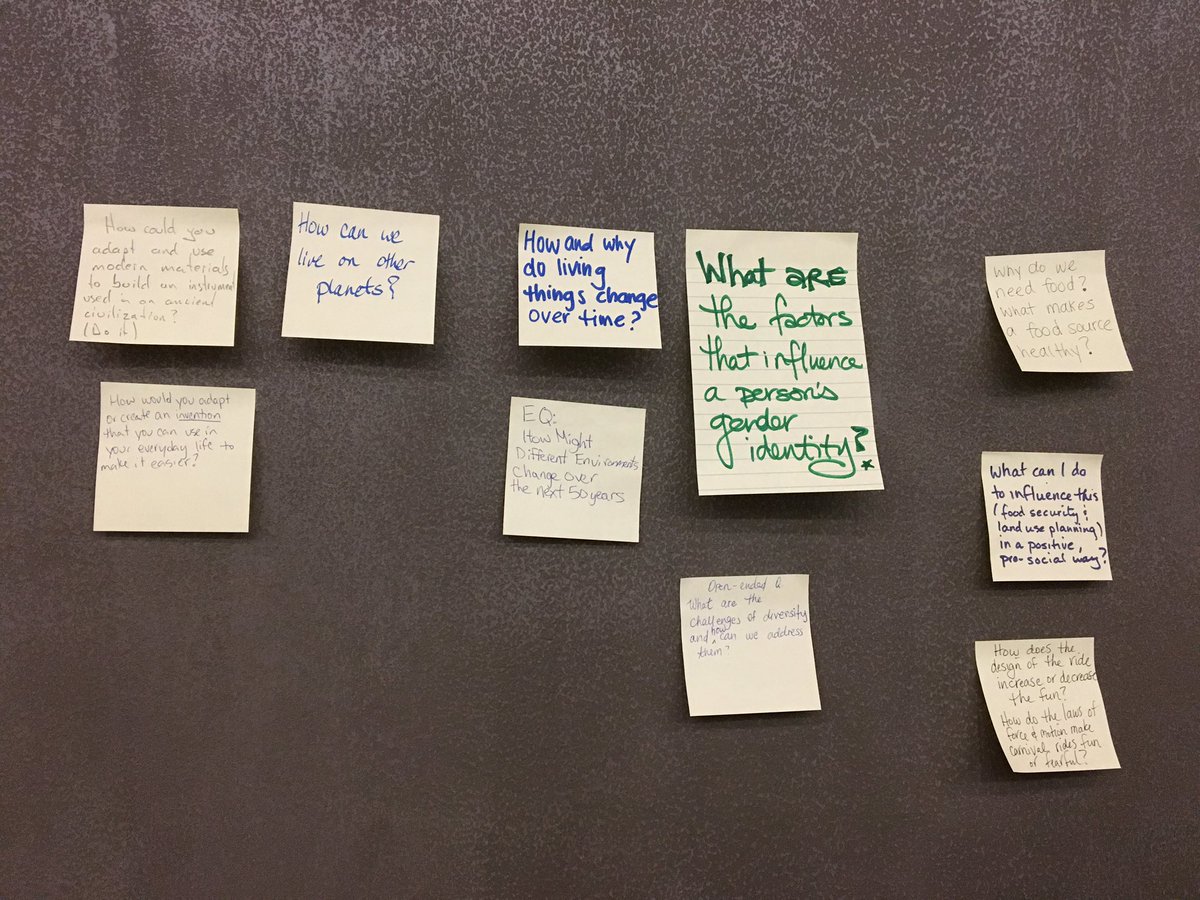 How could you
adapt and use
modern materials
to build an instrument
used in an ancient
civilization?
(Do it)
How can we
live on other
planets?
How and why
do living
things change
over time?
What are
the factors
that influence
a person's
gender
identity?
why do we
need food?
what makes
a food source
healthy?
How would you adapt
or create an invention
that you can use in
your everyday life to
make it easier?
EQ:
How Might
Different Environments
Change Over
the next 50 years
What can I do
to influence this
(food security &
land use planning)
in a positive,
pro-social way?
Open-ended Q
What are the
challenges of diversity
and how can we address
them?
How does the
design of the ride
increase or decrease
the fun?
How do the laws of
force & motion make
carnival rides fun
or fearful?